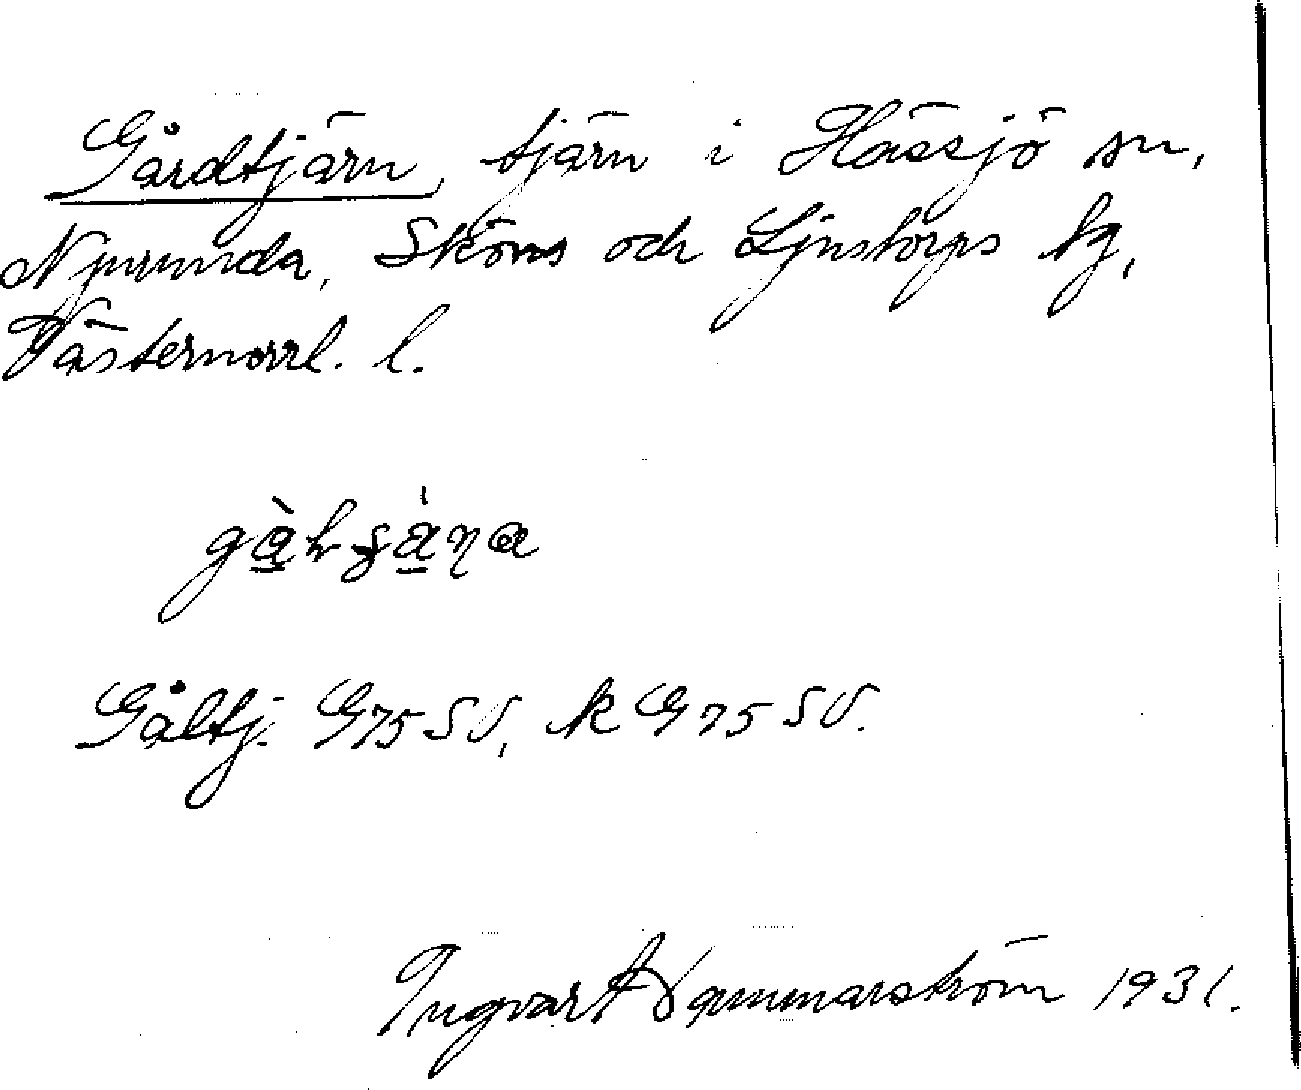 Gårdtjärn, tjärn i Hässjö sn,
Njurunda, Sköns och Ljustorps tg,
Västernorrl. l.
Gåltj. G75 SV, k G75 SV.
Ingvar Hammarström 1931.